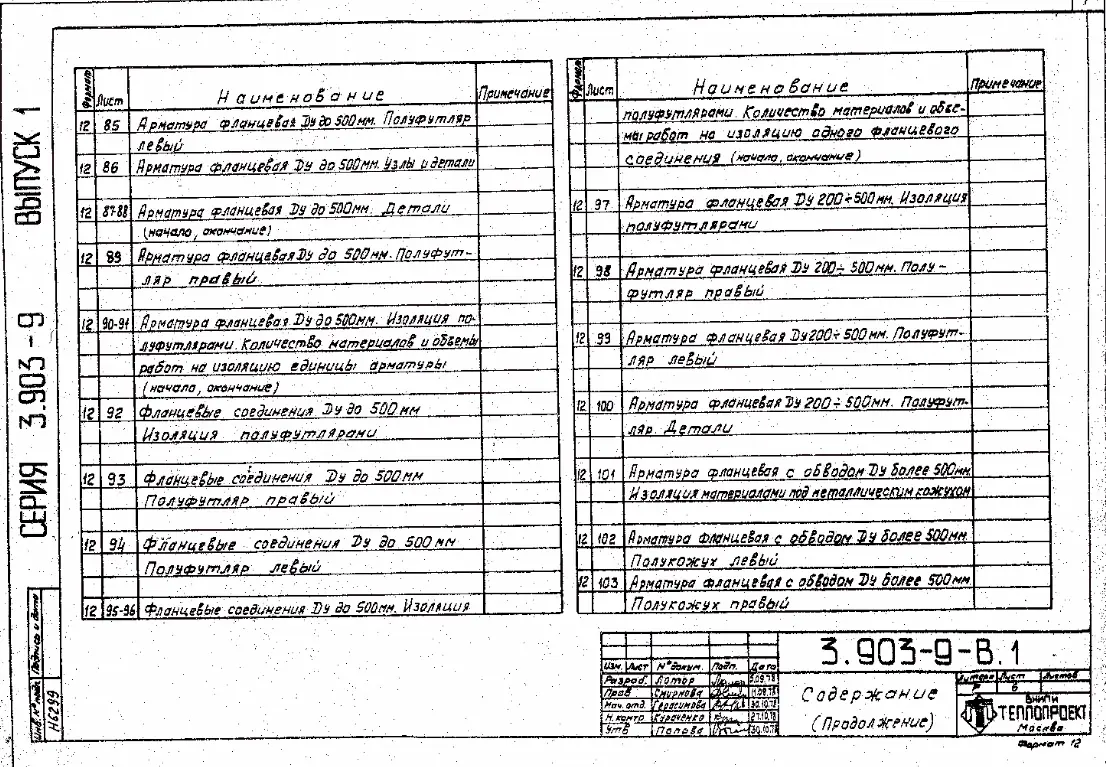 СЕРИЯ 3.903-9 ВЫПУСК 1
Формат Лист Наименование Примечание
12 85 Арматура фланцевая Dу до 500мм. Полуфутляр
левый
12 86 Арматура фланцевая Dу до 500мм. Узлы и детали
12 87-88 Арматура фланцевая Dу до 500мм. Детали
(начало, окончание)
12 89 Арматура фланцевая Dу до 500мм. Полуфут-
ляр правый
12 90-91 Арматура фланцевая Dу до 500мм. Изоляция по-
луфутлярами. Количество материалов и объемы
работ на изоляцию единицы арматуры
(начало, окончание)
12 92 Фланцевые соединения Dу до 500мм
Изоляция полуфутлярами
12 93 Фланцевые соединения Dу до 500мм
Полуфутляр правый
12 94 Фланцевые соединения Dу до 500мм
Полуфутляр левый
12 95-96 Фланцевые соединения Dу до 500мм. Изоляция
Формат Лист Наименование Примечание
полуфутлярами. Количество материалов и объе-
мы работ на изоляцию одного фланцевого
соединения (начало, окончание)
12 97 Арматура фланцевая Dу 200÷500мм. Изоляция
полуфутлярами
12 98 Арматура фланцевая Dу 200÷500мм. Полу-
футляр правый
12 99 Арматура фланцевая Dу 200÷500мм. Полуфут-
ляр левый
12 100 Арматура фланцевая Dу 200÷500мм. Полуфут-
ляр. Детали
12 101 Арматура фланцевая с обводом Dу более 500мм
Изоляция материалами под металлическим кожухом
12 102 Арматура фланцевая с обводом Dу более 500мм
Полукожух левый
12 103 Арматура фланцевая с обводом Dу более 500мм
Полукожух правый
3.903-9-В.1
Изм. Лист № докум. Подп. Дата
Разраб. Лотор
Пров. Смирнова
Нач. отд. Герасимова 30.10.78
Н. контр. Караченко 27.10.78
Утв. Попова 30.10.78
Содержание
(Продолжение)
Литера Лист Листов
Р 6
ВНИПИ
ТЕПЛОПРОЕКТ
Москва
Формат 12
Инв. № подл. Подпись и дата
Н6299